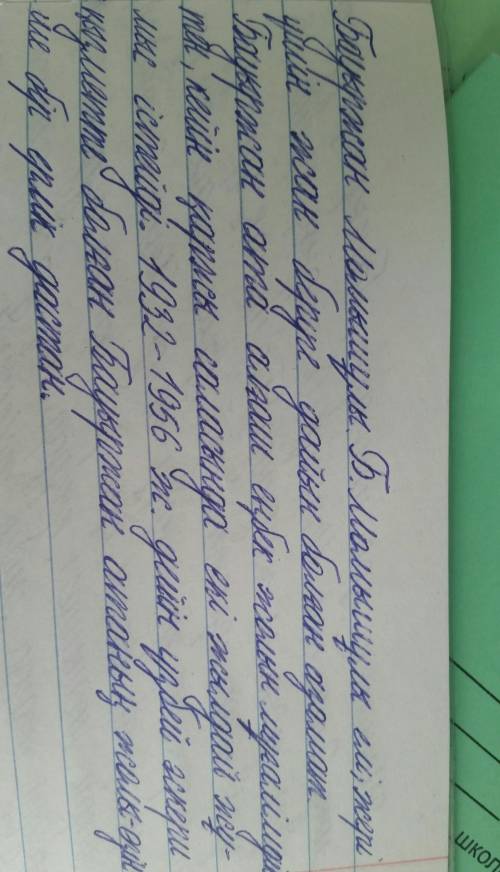 Бауыржан Момышұлы. Б. Момышұлы елі, жері
үшін жан беруге дайын болған азамат.
Бауыржан ата алғаш еңбек жолын мұғалімдік
те, кейін қаржы саласында екі жылдай жұ-
мыс істейді. 1932-1956 ж. дейін үздік әскери
қызметте болған Бауыржан атаның жолы
бір ерлік дастан.
школ